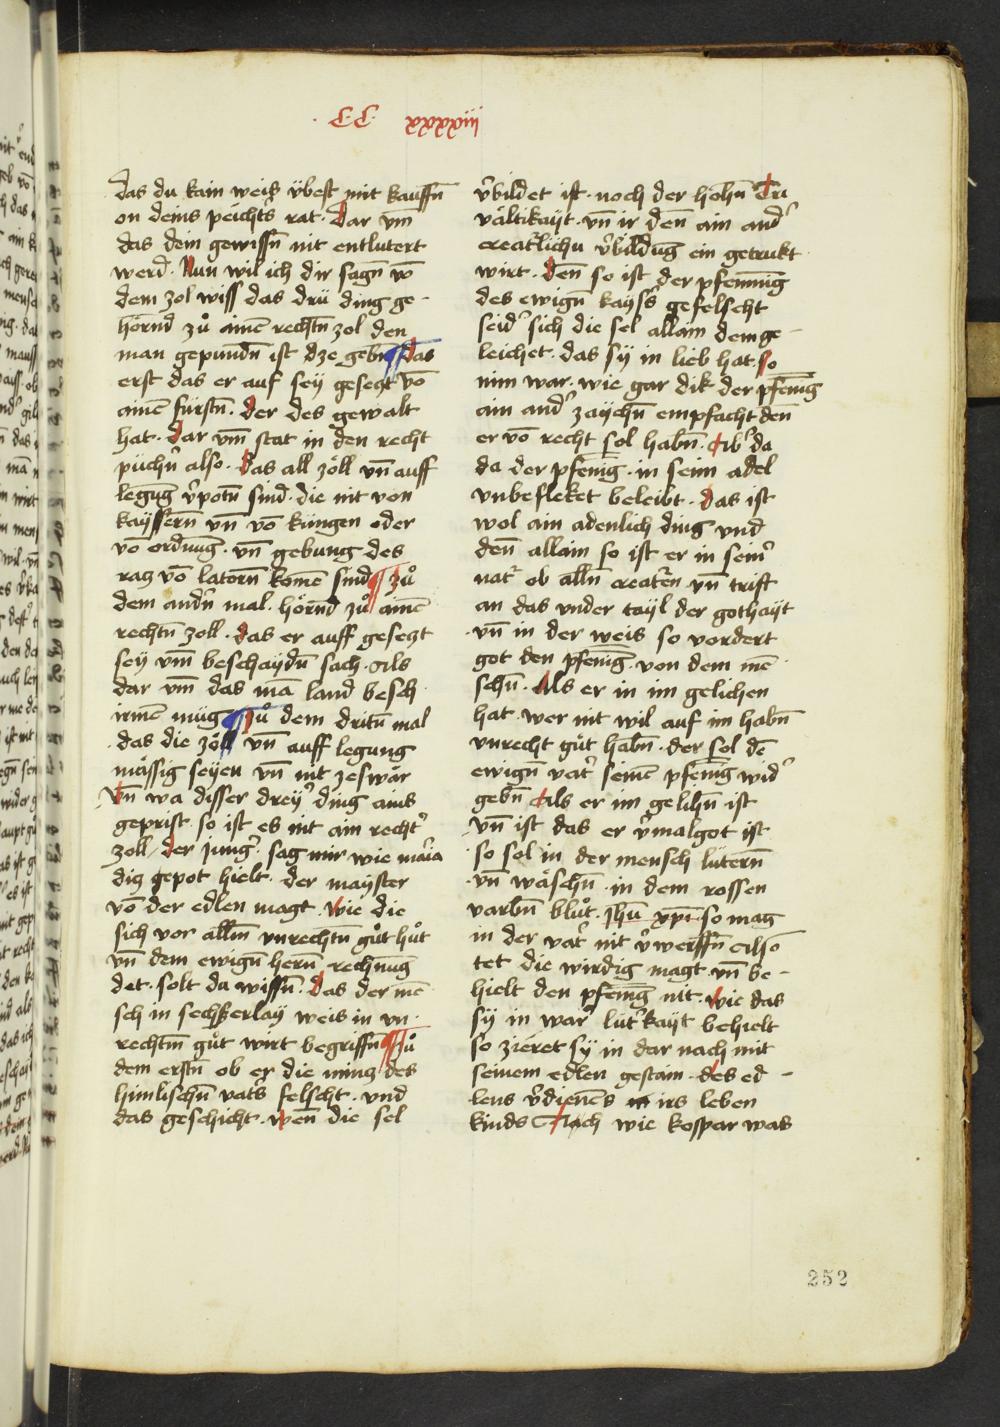 · C C · xxxxiii
das du kain weis v̈best mit kauffn̄
on deins peichtˢ rat · Dar vm̄
das dein gewissn̄ nit entlutert
werd̄ · Nun wil ich dir sagn̄ vō
dem zol wiss das drü ding ge-
hörnd zů ainē rechtn̄ zol den
man gepundn̄ ist dze gebn̄ ¶ das
erst das er auf sey gesegt vō
ainē furstn̄ · der des gewalt
hat · Dar vm̄ stat in den recht
püchn̄ also · Das all zöll vn̄ auff
legung v̉potn̄ sind · die nit von
kayssern̄ vn̄ vō küngen oder
vō ordnung · vn̄ gebung des
ratz vō latorn̄ komē sind ¶ zů
dem andn̄ mal · hörnd zů ainē
rechtn̄ zoll · das er auff gesegt
sey vm̄ beschaydn̄ sach · Als
dar vm̄ das mā land besch
irmē müg ¶ zů dem dritn̄ mal
· das die zöll vn̄ auff legung
mässig seyen vn̄ nit zeswär
Vn̄ wa disser drey̓ ding ains
geprist · so ist es nit ain recht̓
zoll / der jung̓ · sag mir wie maria
diz gepot hielt · der mayster
vō der edlen magt · wie die
sich vor allm̄ vnrechtn̄ gůt hůt
vn̄ dem ewign̄ hern̄ rechnūg
det · solt da wissn̄ · Das der mē
sch in sechßerlay weis in vn-
rechtm̄ gůt wirt begriffn̄ ¶ zů
dem erstn̄ ob er die müncz des
himlischn̄ vatˢ felscht · vnd
das geschicht · wen̄ die sel
v̓bildet ist · noch der hohn̄ Tri
vältikayt · vn̄ ir den̄ ain and̓
creat̓lichu v̓bildūg ein getrukt
wirt · Den̄ so ist der pfenning
des ewign̄ kaysˢ gefelscht
seid̓ sich die sel allain dem ge-
leichet · das sy in lieb hat · so
nim war · wie gar dik der pfenīg
ain and̓ zaychn̄ empfacht den̄
er vō recht sol habn̄ · Ab̓ da
da der pfenīg · in senn adel
vnbefleket beleibt · das ist
wol ain adenlich ding vnd
den̄ allain so ist er in seim̓
nat̓ ob alln̄ creatr̄en · vn̄ trift
an das vnder tayl der gothayt
· vn̄ in der weis so vordert
got den pfenīg · von dem mē
schn̄ · Als er in im gelichen
hat · wer nit wil auf im habn̄
vnrecht gůt habn̄ · der sol dē
ewign̄ vat̓ seinē pfenīg wid̓
gebn̄ Als er im gelihn̄ ist
· vn̄ ist das er v̓malgot ist
· so sol in der mensch lütern̄
· vn̄ wäschn̄ · in dem rossen
varbn̄ blůt · jhū xp̄i · so mag
in der vat̓ nit v̓werffn̄ also
tet die wirdig magt vn̄ be-
hielt den pfenīg nit · wie das
sy in war̓ lut̓kayt behielt
so zieret sy in dar nach mit
seinem edlen gestain · des ed-
lens v̓dienēs irs leben
kinds Ach wie kosspar was
252